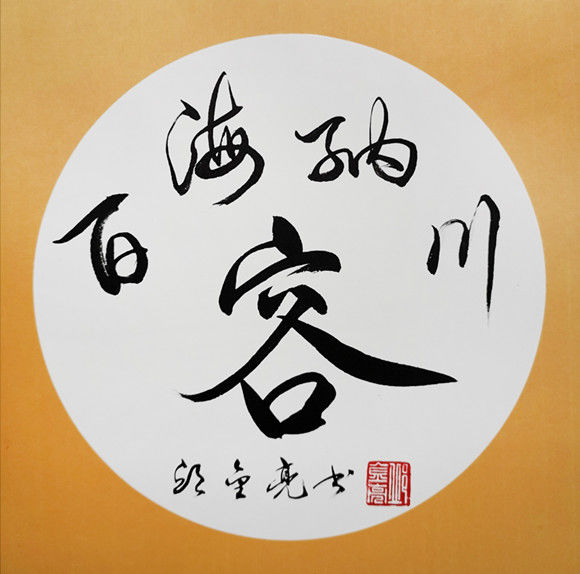 海纳
百川
容
邱金亮书